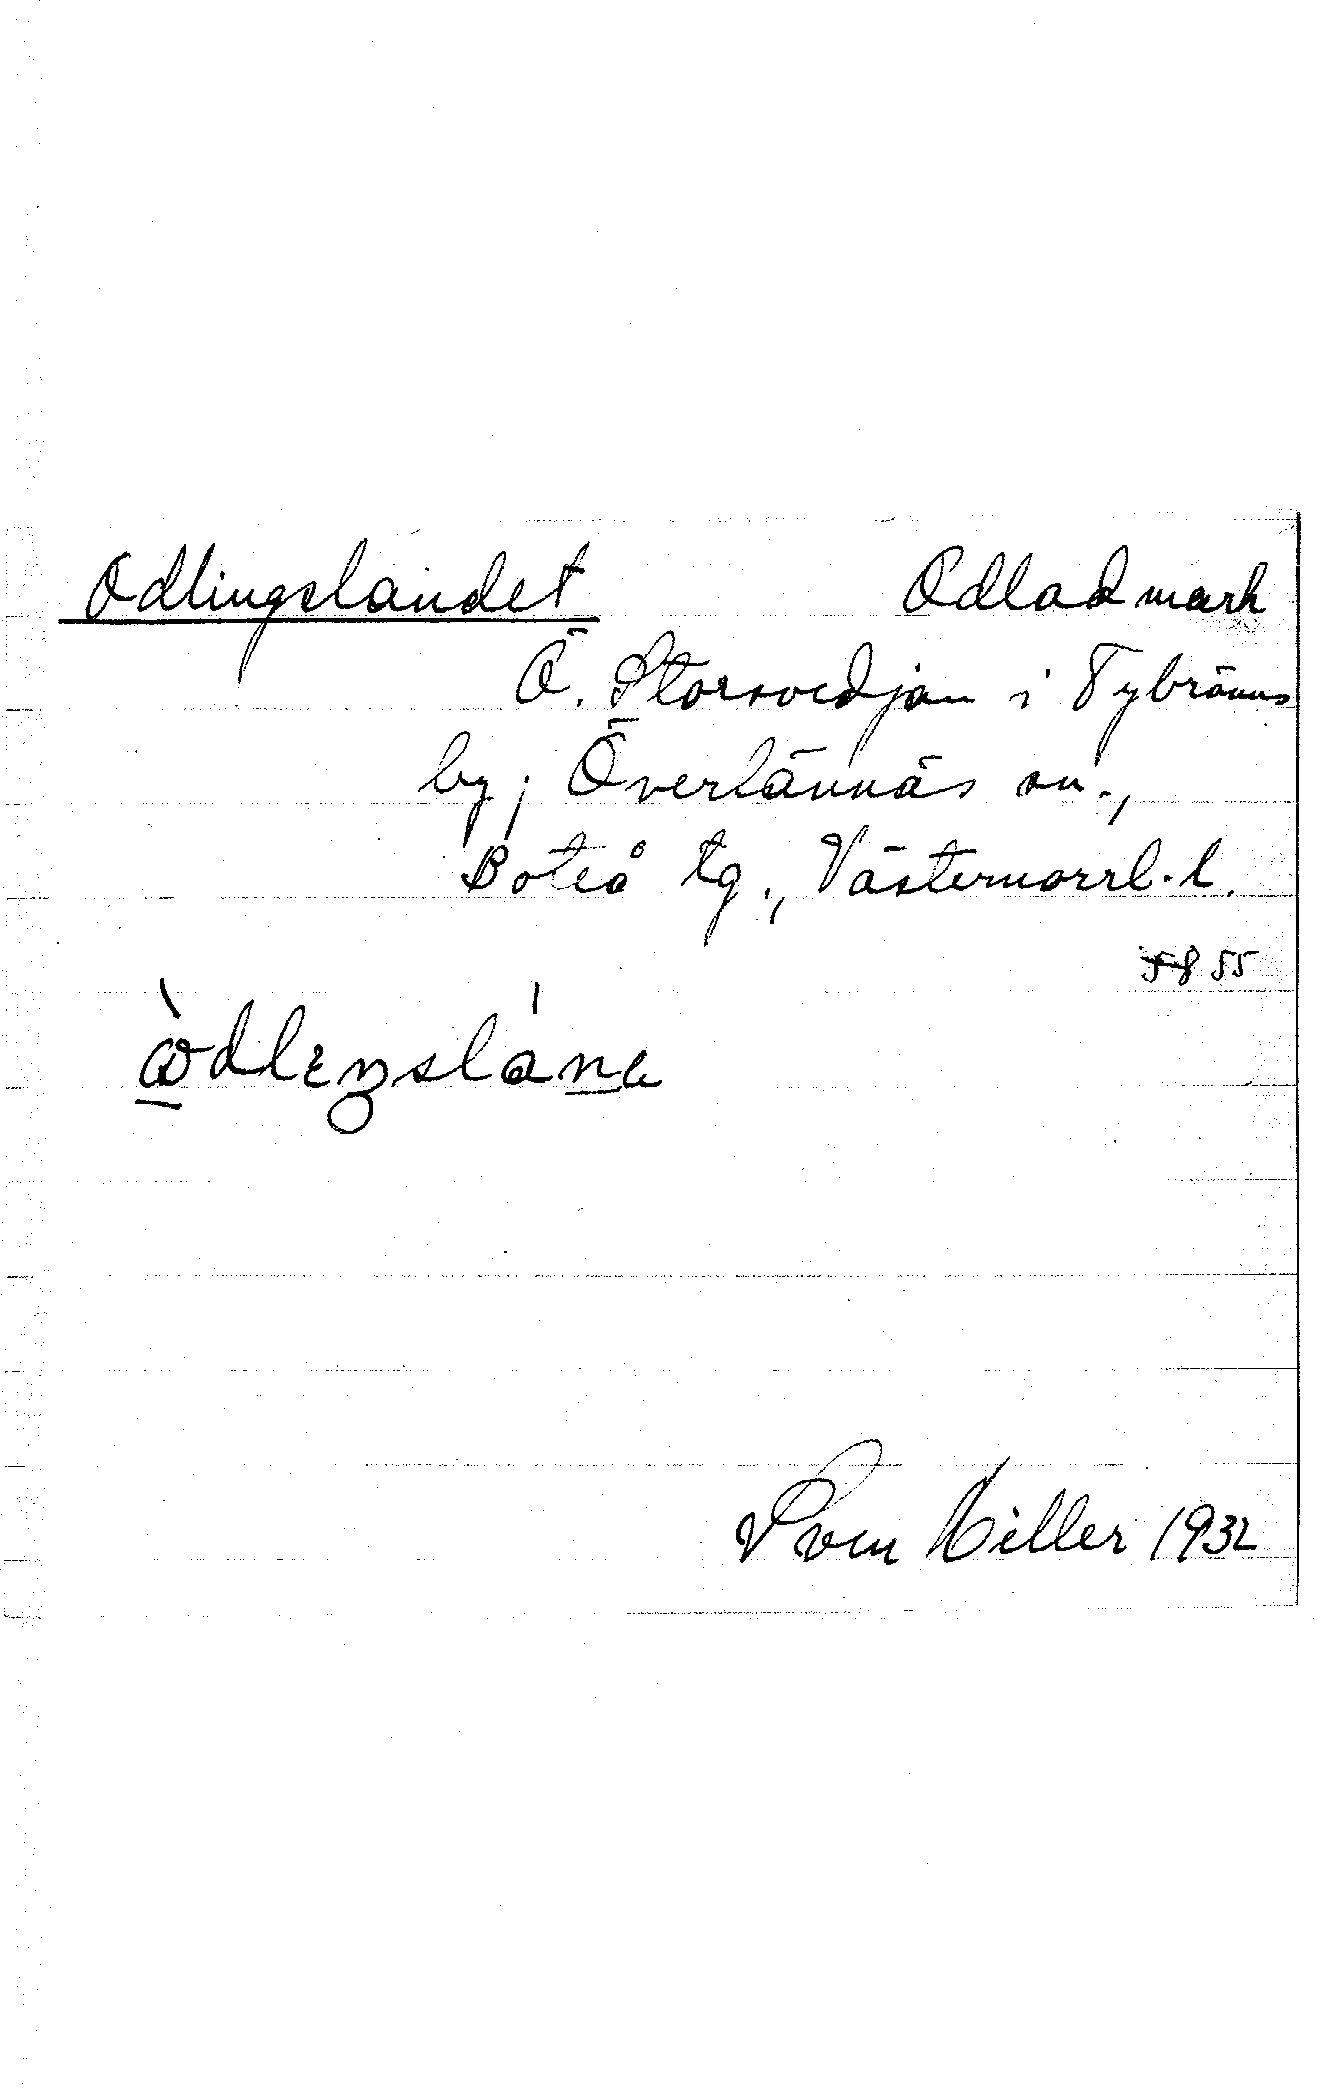 Odlingslandet Odlad mark
Ö. Storsvedjan i Tybränns
by; Överlännäs sn.,
Boteå tg., Västernorrl. l.
5855
Sven Hiller 1932